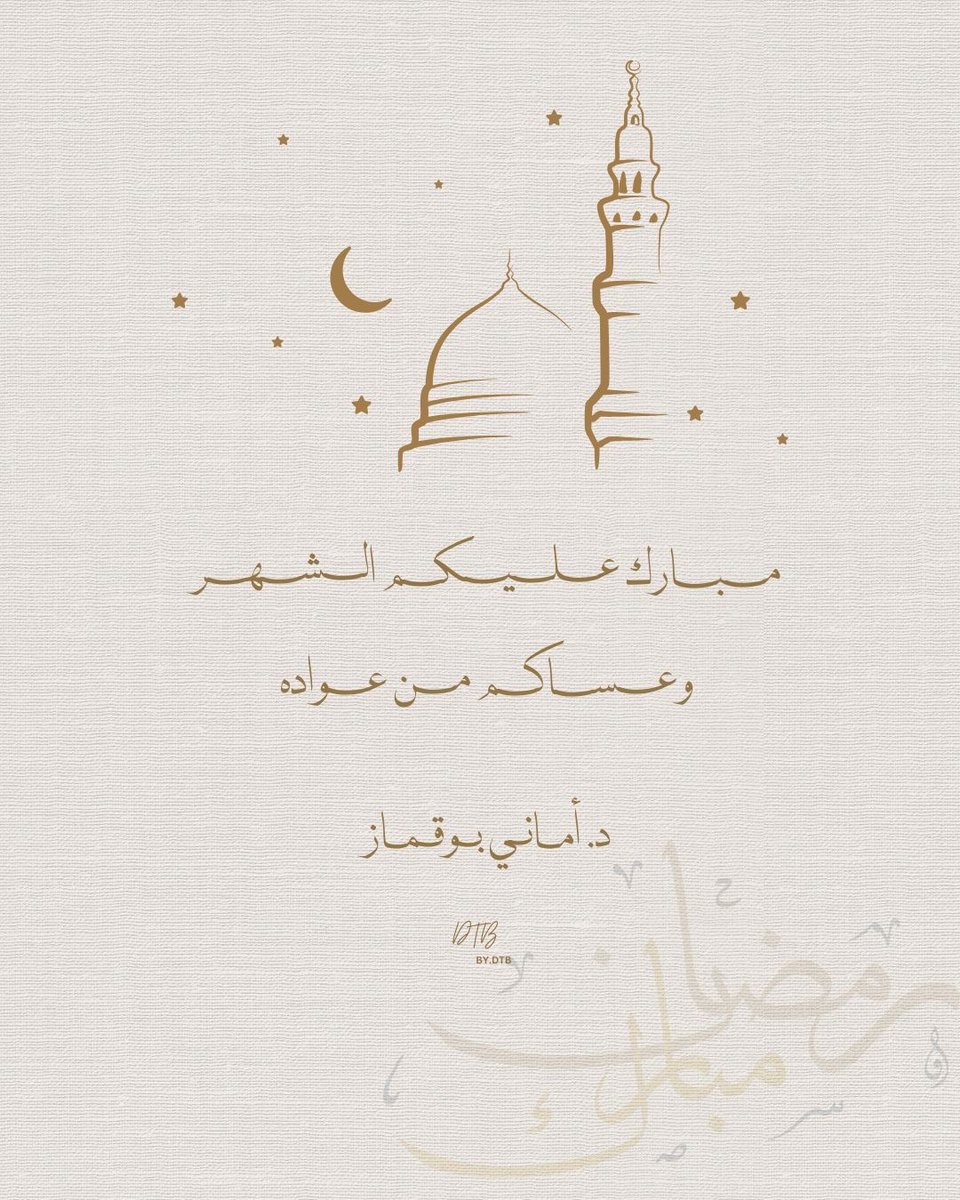 مبارك عليكم الشهر
وعساكم من عواده
د. أماني بوقماز
DTB
BY.DTB
رمضان
مبارك